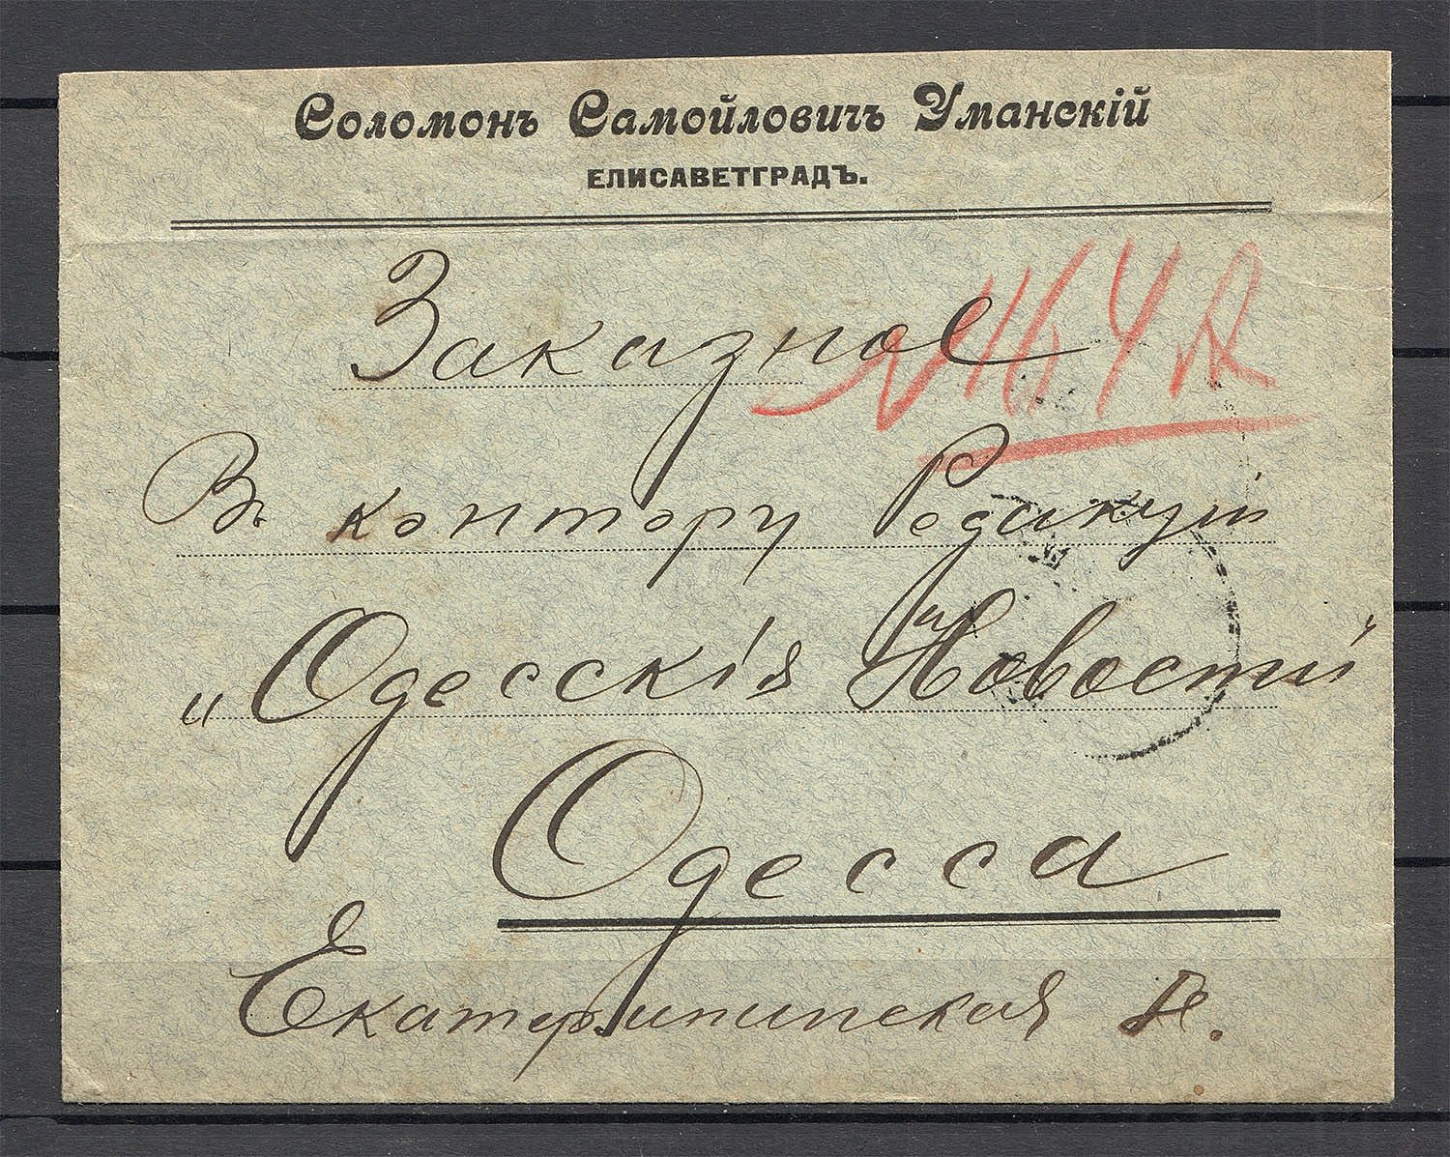 Соломонъ Самойловичъ Уманскій
ЕЛИСАВЕТГРАДЪ.
Заказное
№ 464
Въ контору Редакціи
„Одесскія Новости“
Одесса
Екатерининская